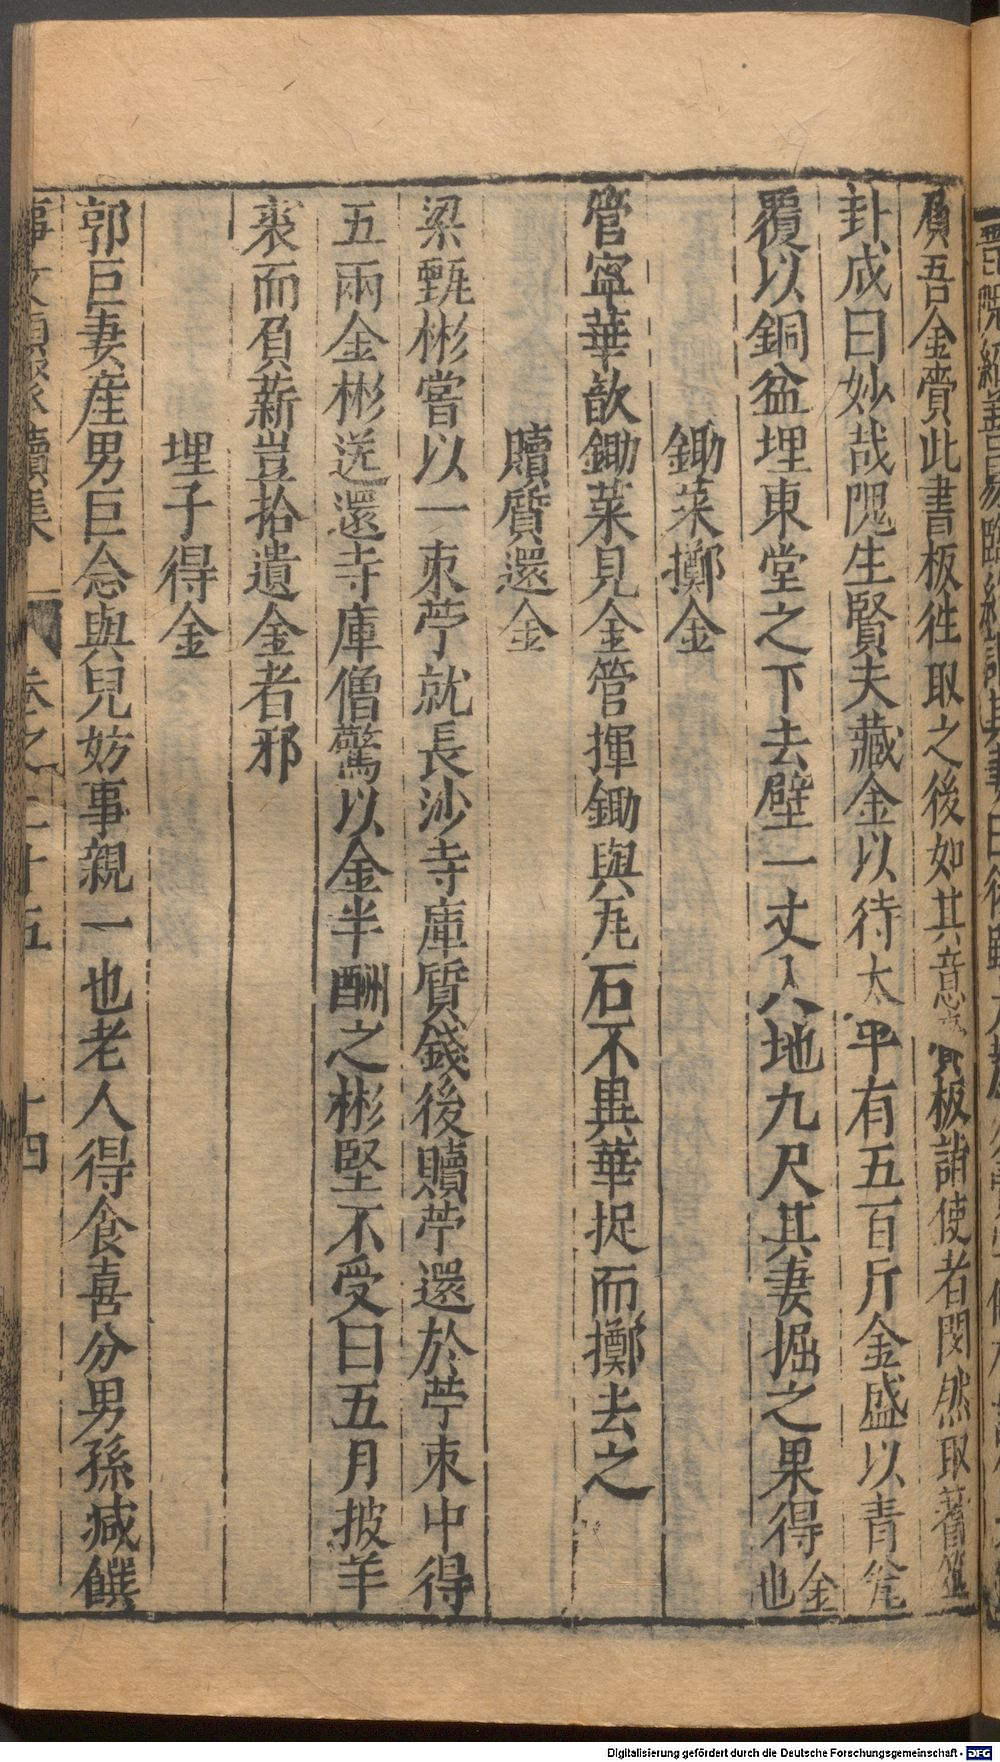 負吾金賫此書板徃取之後如其意板詣使者閔然取蓍筮
卦成曰妙哉隗生賢夫藏金以待太平有五百斤金盛以青瓮
覆以銅盆埋東堂之下去壁一丈入地九尺其妻掘之果得金也
鋤菜擲金
管寧華歆鋤菜見金管揮鋤與瓦石不異華捉而擲去之
贖質還金
梁甄彬嘗以一束苧就長沙寺庫質錢後贖苧還於苧束中得
五兩金彬送還寺庫僧驚以金半酬之彬堅不受曰五月披羊
裘而負薪豈拾遺金者邪
埋子得金
郭巨妻産男巨念與兒妨事親一也老人得食喜分男孫減饌
事文類聚續集 卷之二十五 十四
Digitalisierung gefördert durch die Deutsche Forschungsgemeinschaft - DFG